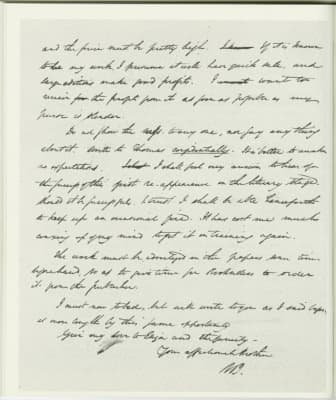 and the price must be pretty high. If it is known
to be my work I presume it will have quick sale, and
large editions make good profit. I want to
receive the profit from it as soon as possible as my
purse is
Do not show the MSS. to any one, nor say any thing
about it. Write to Thomas confidentially. It is better to awaken
no expectations. I shall feel very anxious to hear of
the success of this first re-appearance on the literary stage.
Should it be successful, I trust I shall be able henceforth
to keep up an occasional fire. It has cost me much
of my mind to get it in training again.
The work must be advertised in the papers some time
beforehand, so as to give time for Booksellers to order
it from the publisher.
I must now to bed, but will write to you as I said before
at more length by this same opportunity
Give my love to Eliza and the family—
Your affectionate brother